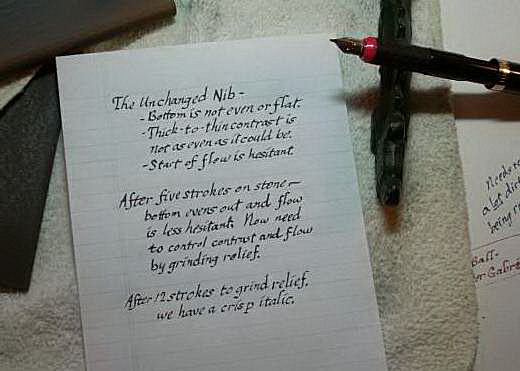 The Unchanged Nib -
- Bottom is not even or flat.
- Thick-to-thin contrast is
not as even as it could be.
- Start of flow is hesitant.
After five strokes on stone —
bottom evens out and flow
is less hesitant. Now need
to control contrast and flow
by grinding relief.
After 12 strokes to grind relief,
we have a crisp italic.
Needs
a lot
being
Ball-